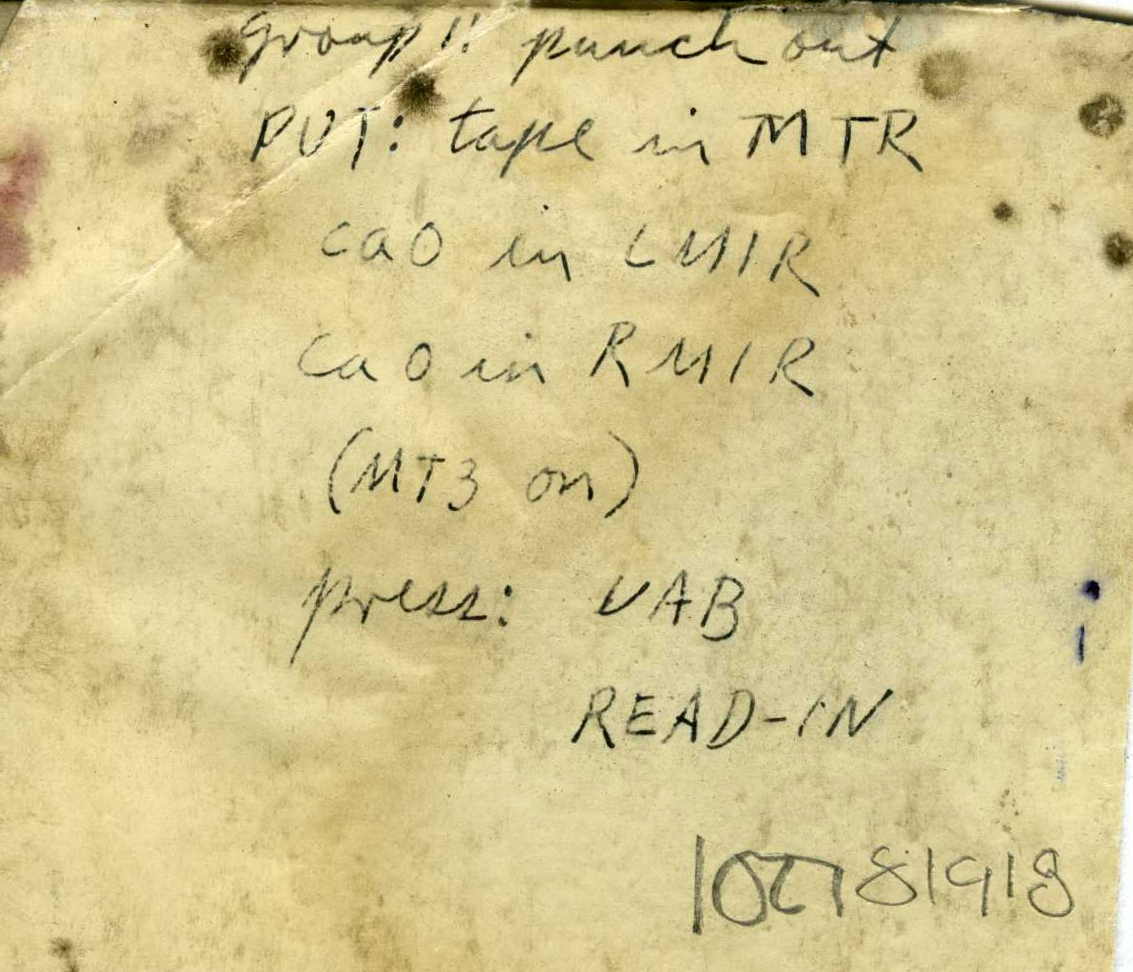 group!! punch out
PUT: tape in MTR
ca0 in LMIR
ca0 in RMIR
(MT3 on)
press: VAB
READ-IN
102781918